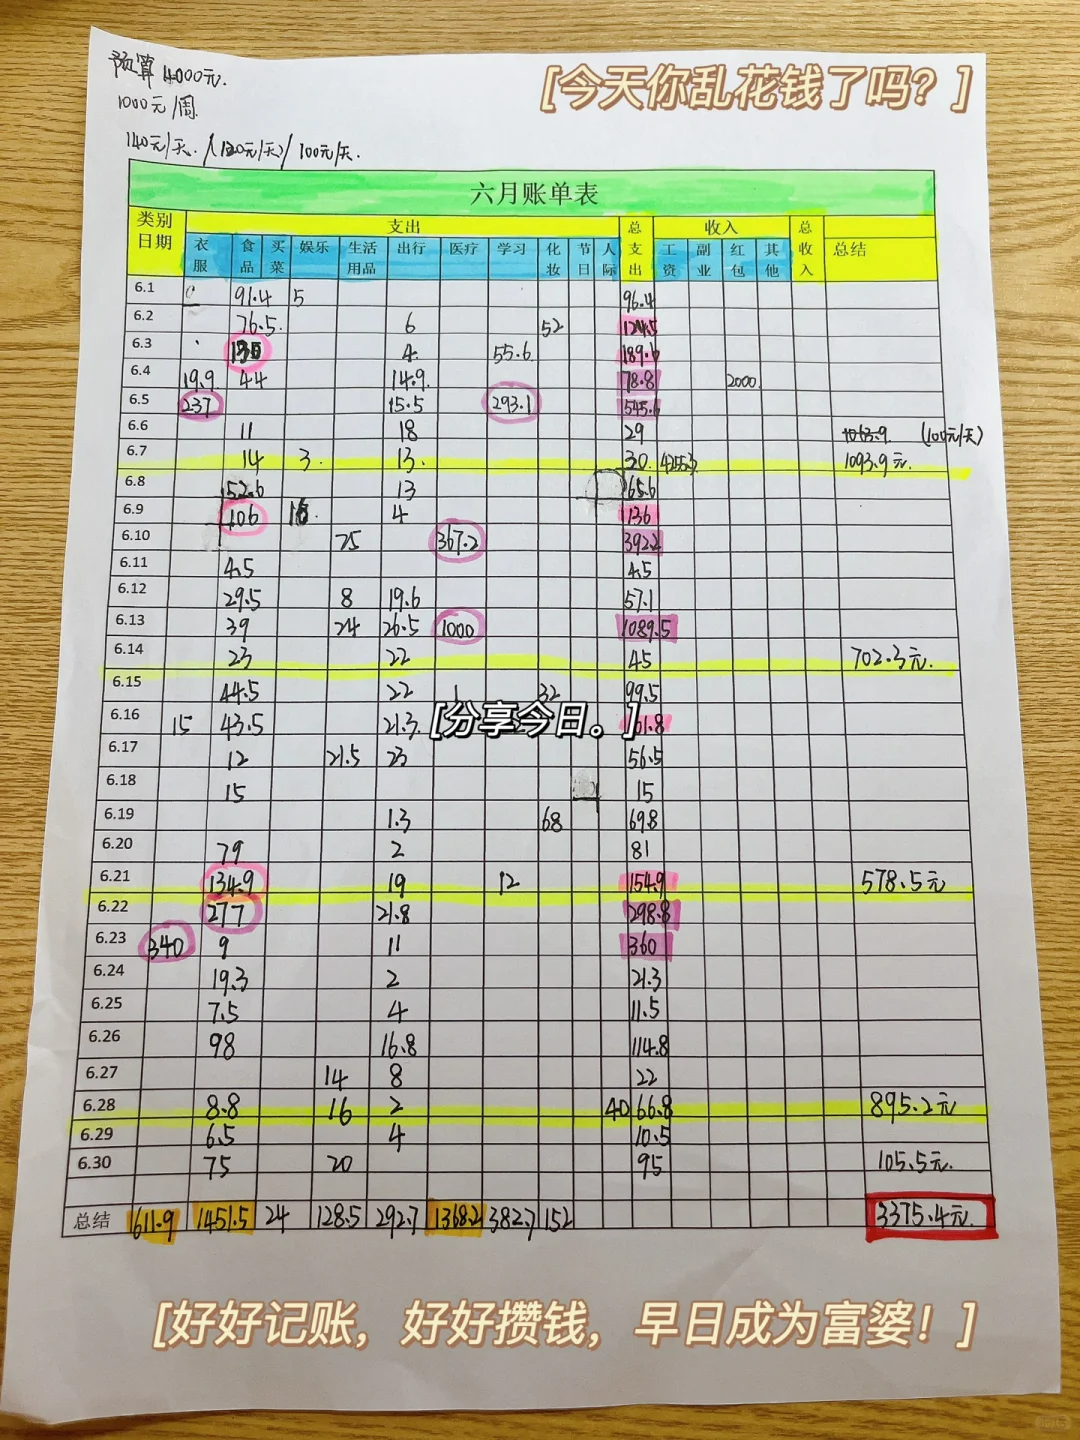 预算 4000元.
[今天你乱花钱了吗？]
1000元/周
140元/天. (120元/天) / 100元/天.
六月账单表
类别 日期 支出 总支出 收入 总收入 总结
衣服 食品 买菜 娱乐 生活用品 出行 医疗 学习 化妆 节日 人际 工资 副业 红包 其他
6.1 0 91.4 5 96.4
6.2 76.5. 6 52 124.5
6.3 130 4. 55.6. 189.6
6.4 19.9 44 14.9. 78.8 2000.
6.5 237 15.5 293.1 545.6
6.6 11 18 29 1063.9 (100元/天)
6.7 14 3. 13. 30. 4255.3 1093.9元.
6.8 52.6 13 65.6
6.9 106 16. 4 136
6.10 25 367.2 392.2
6.11 4.5 4.5
6.12 29.5 8 19.6 57.1
6.13 39 24 26.5 1000 1089.5
6.14 23 22 45 702.3元.
6.15 44.5 22 1 32 99.5
6.16 15 43.5 21.3. 61.8
[分享今日。]
6.17 12 21.5 23 56.5
6.18 15 15
6.19 1.3 68 69.8
6.20 79 2 81
6.21 134.9 19 12 154.9 578.5元
6.22 277 21.8 298.8
6.23 340 9 11 360
6.24 19.3 2 21.3
6.25 7.5 4 11.5
6.26 98 16.8 114.8
6.27 14 8 22
6.28 8.8 16 2 40 66.8 895.2元
6.29 6.5 4 10.5
6.30 75 20 95 105.5元.
总结 611.9 1451.5 24 128.5 292.7 1368.2 382.7 152 3375.4元.
[好好记账，好好攒钱，早日成为富婆！]